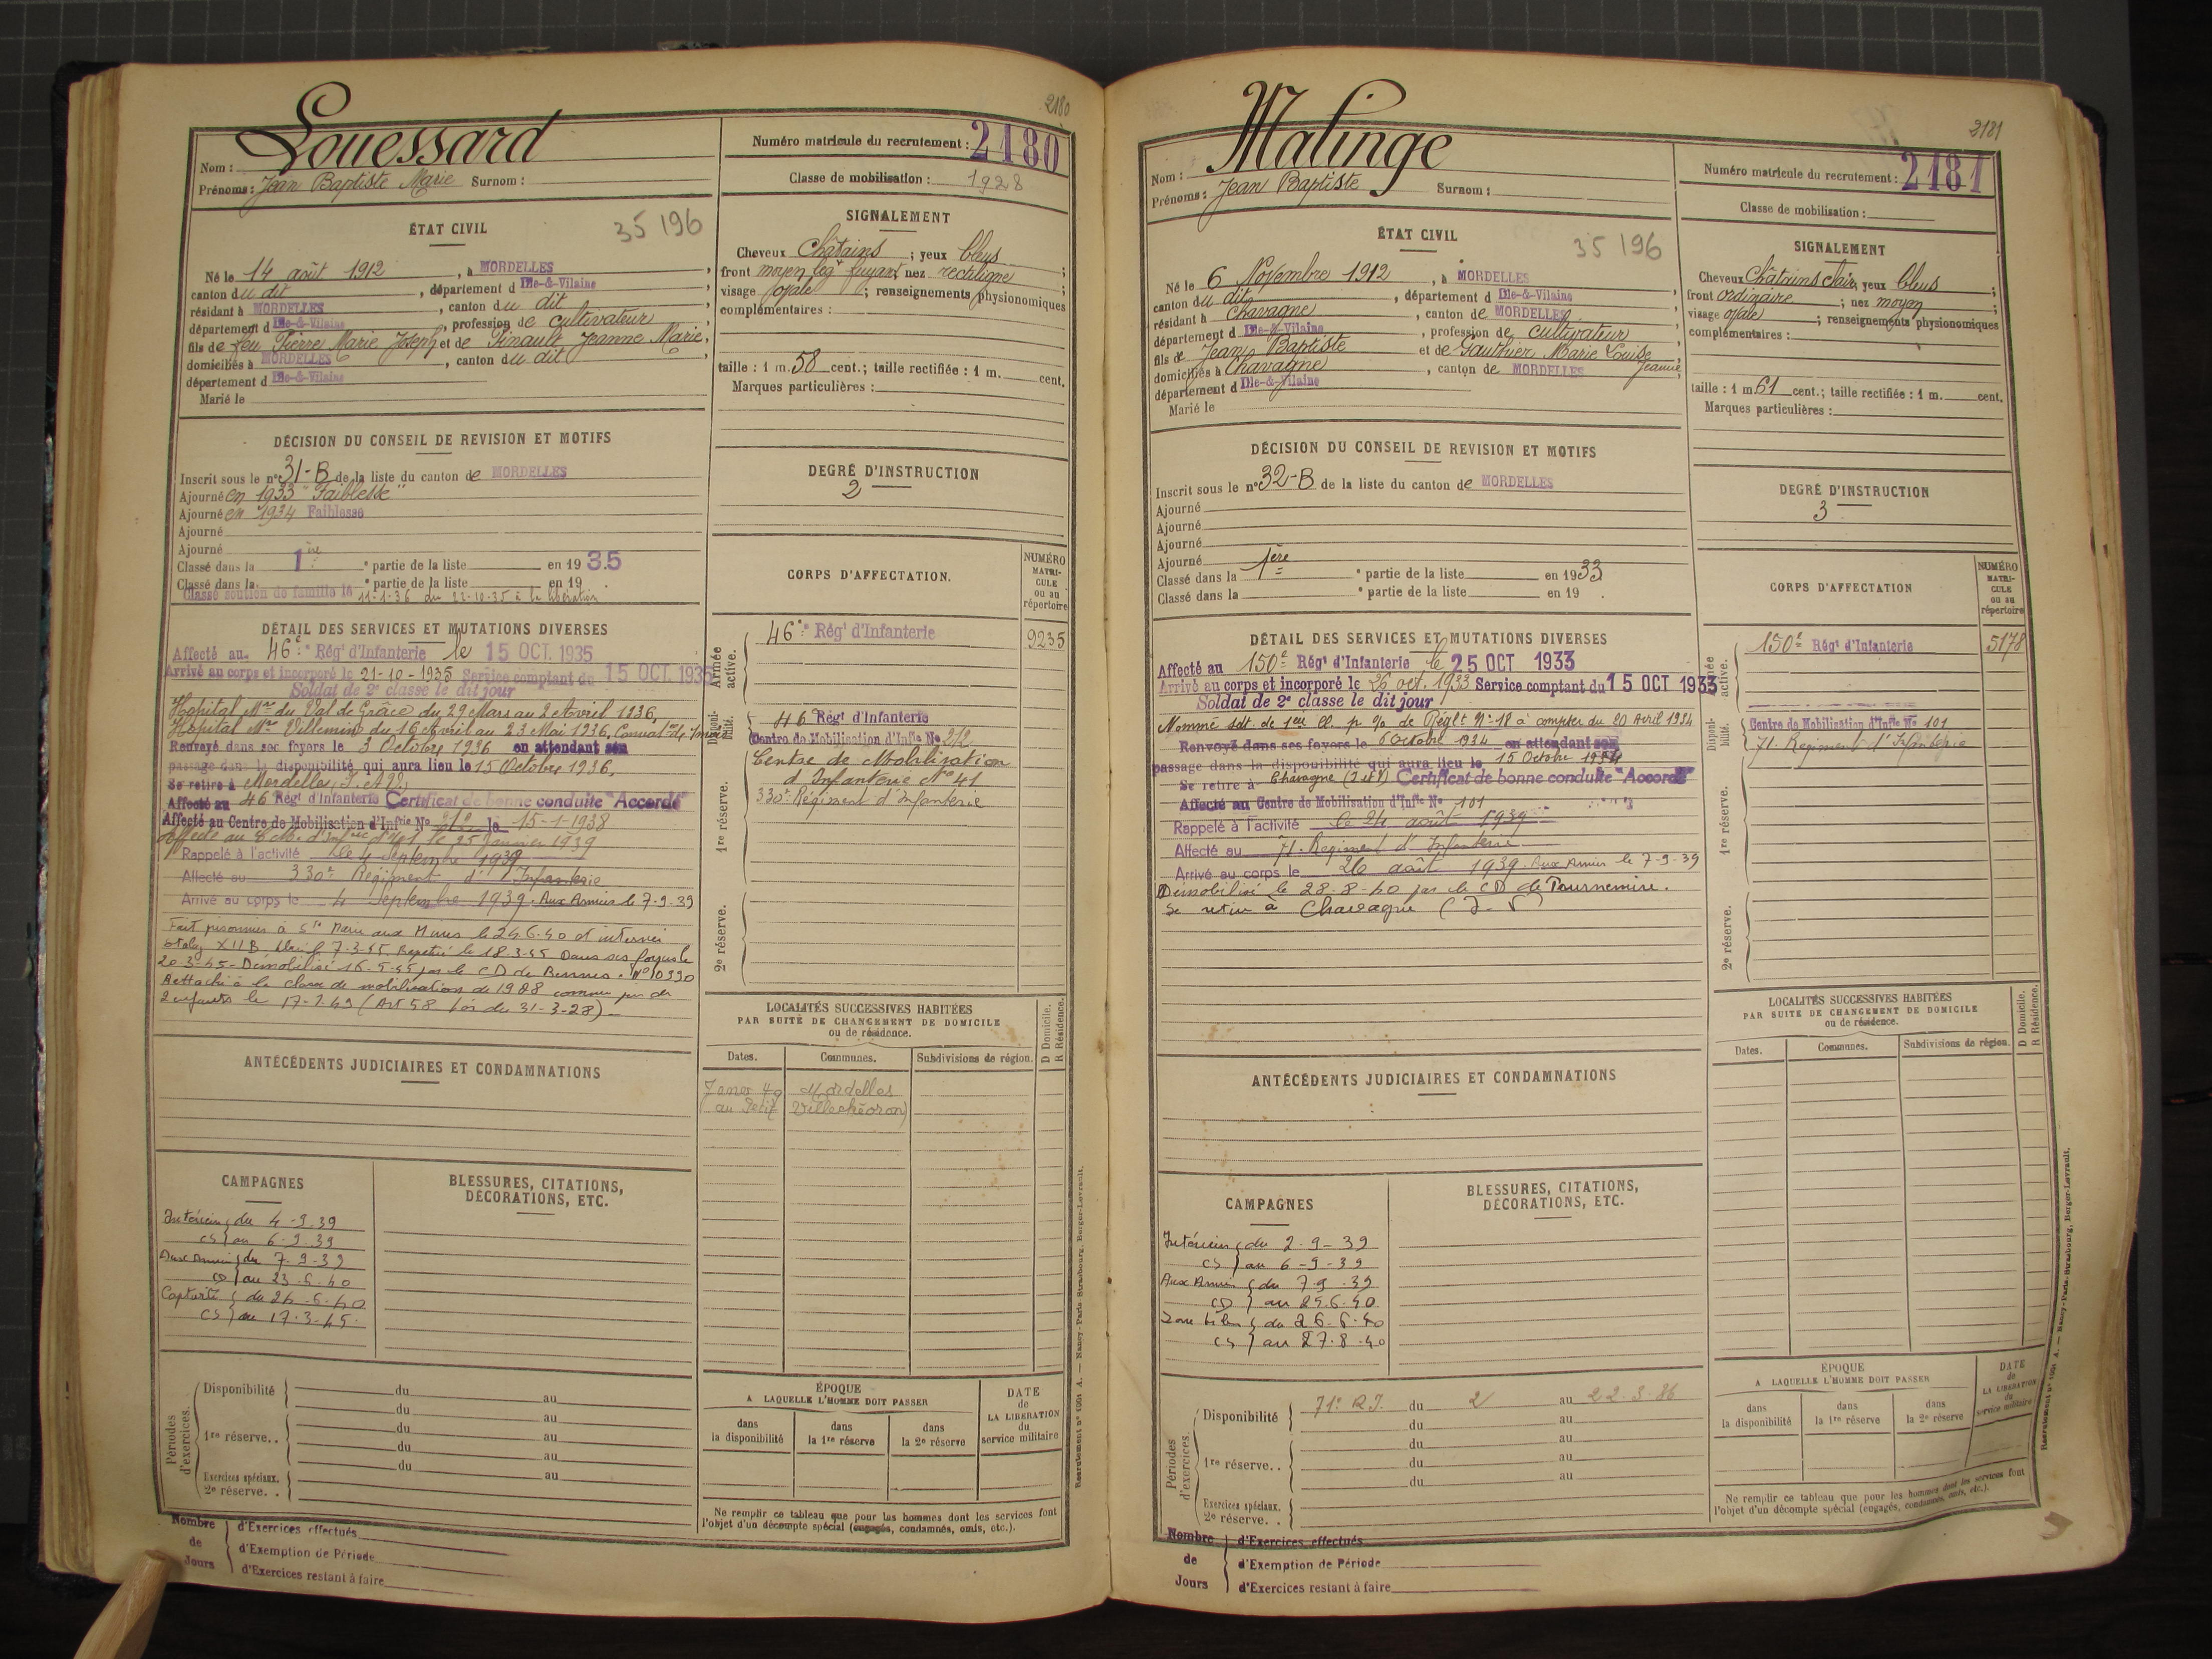 2180
Louessard
Nom :
Prénoms : Jean Baptiste Marie Surnom :
Numéro matricule du recrutement : 2180
Classe de mobilisation : 1928
ÉTAT CIVIL
35196
Né le 14 août 1912, à MORDELLES,
canton du dit, département d Ille-&-Vilaine
résidant à MORDELLES, canton du dit,
département d Ille-&-Vilaine, profession de cultivateur,
fils de feu Pierre Marie Joseph et de Pinault Jeanne Marie,
domiciliés à MORDELLES, canton du dit
département d Ille-&-Vilaine
Marié le
SIGNALEMENT
Cheveux Châtains ; yeux bleus ;
front moyen leg^t fuyant nez rectiligne ;
visage ovale ; renseignements physionomiques
complémentaires :
taille : 1 m. 58 cent.; taille rectifiée : 1 m. cent.
Marques particulières :
DÉCISION DU CONSEIL DE REVISION ET MOTIFS
Inscrit sous le n° 31-B de la liste du canton de MORDELLES
Ajourné en 1933 "Faiblesse"
Ajourné en 1934 Faiblesse
Ajourné
Ajourné
Classé dans la 1ère partie de la liste en 1935
Classé dans la partie de la liste en 19 .
Classé soutien de famille le 11-1-36 du 22-10-35 à la libération
DEGRÉ D'INSTRUCTION
2
CORPS D'AFFECTATION.
NUMÉRO MATRICULE ou au répertoire
DÉTAIL DES SERVICES ET MUTATIONS DIVERSES
Affecté au 46e Régt d'Infanterie le 15 OCT. 1935
Arrivé au corps et incorporé le 21-10-1935 Service comptant du 15 OCT. 1935
Soldat de 2e classe le dit jour
Hopital Mre du Val de Grâce du 29 Mars au 2 Avril 1936,
Hopital Mre Villemin du 16 Avril au 23 Mai 1936,
Renvoyé dans ses foyers le 3 Octobre 1936 en attendant son
passage dans la disponibilité qui aura lieu le 15 Octobre 1936.
Se retire à Mordelles, I. et V.
Affecté au 46 Régt d'Infanterie Certificat de bonne conduite "Accordé"
Affecté au Centre de Mobilisation d'Infrie No 212 le 15-1-1938
Rappelé à l'activité le 4 Septembre 1939
Affecté au 330e Régiment d'Infanterie
Arrivé au corps le 4 Septembre 1939. Aux Armées le 7-9-39
Fait prisonnier à Ste Marie aux Mines le 24.6.40 et interné
stalag XII B libéré le 7-3-45. Rapatrié le 18.3.45 Dans ses foyers le
20-3-45 - Démobilisé 16-5-45 par le CD de Rennes. No 10990
Rattaché à la classe de mobilisation de 1928 comme père de
2 enfants le 17-2-49 (Art 58 loi du 31-3-28) -
Armée active.
46e Régt d'Infanterie 9235
Disponibilité.
46 Régt d'Infanterie
Centre de Mobilisation d'Infie No 212
Centre de Mobilisation
d'Infanterie No 41
330e Régiment d'Infanterie
1re réserve.
2e réserve.
LOCALITÉS SUCCESSIVES HABITÉES
PAR SUITE DE CHANGEMENT DE DOMICILE
ou de résidence.
D Domicile. R Résidence.
Dates. Communes. Subdivisions de région.
Janv 49 Mordelles
(au Petit Villechéoron)
ANTÉCÉDENTS JUDICIAIRES ET CONDAMNATIONS
CAMPAGNES
BLESSURES, CITATIONS,
DÉCORATIONS, ETC.
Intérieur du 4-9-39
CS au 6-9-39
Aux Armées du 7.9.39
CD au 23.6.40
Captivité du 24-6-40
CS au 17-3-45.
Périodes d'exercices.
Disponibilité du au
du au
1re réserve.. du au
du au
du au
Exercices spéciaux.
2e réserve. .
ÉPOQUE
A LAQUELLE L'HOMME DOIT PASSER
dans la disponibilité
dans la 1re réserve
dans la 2e réserve
DATE de LA LIBÉRATION du service militaire
Ne remplir ce tableau que pour les hommes dont les services font
l'objet d'un décompte spécial (engagés, condamnés, omis, etc.).
Nombre de Jours
d'Exercices effectués
d'Exemption de Période
d'Exercices restant à faire
Recrutement n° 1051 A. — Nancy-Paris-Strasbourg, Berger-Levrault.
2181
Malinge
Nom :
Prénoms : Jean Baptiste Surnom :
Numéro matricule du recrutement : 2181
Classe de mobilisation :
ÉTAT CIVIL
35196
Né le 6 Novembre 1912, à MORDELLES
canton du dit, département d Ille-&-Vilaine
résidant à Chavagne, canton de MORDELLES,
département d Ille-&-Vilaine, profession de cultivateur,
fils de Jean Baptiste et de Gauthier Marie Louise
Jeanne,
domiciliés à Chavagne, canton de MORDELLES
département d Ille-&-Vilaine
Marié le
SIGNALEMENT
Cheveux Châtains clairs, yeux bleus ;
front ordinaire ; nez moyen ;
visage ovale ; renseignements physionomiques
complémentaires :
taille : 1 m 61 cent.; taille rectifiée : 1 m. cent.
Marques particulières :
DÉCISION DU CONSEIL DE REVISION ET MOTIFS
Inscrit sous le n° 32-B de la liste du canton de MORDELLES
Ajourné
Ajourné
Ajourné
Ajourné
Classé dans la 1ère partie de la liste en 1933
Classé dans la partie de la liste en 19 .
DEGRÉ D'INSTRUCTION
3
CORPS D'AFFECTATION
NUMÉRO MATRICULE ou au répertoire
DÉTAIL DES SERVICES ET MUTATIONS DIVERSES
Affecté au 150e Régt d'Infanterie le 25 OCT 1933
Arrivé au corps et incorporé le 26 oct. 1933 Service comptant du 15 OCT 1933
Soldat de 2e classe le dit jour
Nommé sdt. de 1ère cl. p. % de Réglt No 18 à compter du 20 Avril 1934
Renvoyé dans ses foyers le 6 Octobre 1934 en attendant son
passage dans la disponibilité qui aura lieu le 15 Octobre 1934
Se retire à Chavagne (I et V) Certificat de bonne conduite "Accordé"
Affecté au Centre de Mobilisation d'Infie No 101
Rappelé à l'activité le 24 août 1939
Affecté au 71e Régiment d'Infanterie
Arrivé au corps le 26 août 1939. Aux Armées le 7-9-39
Démobilisé le 28-8-40 par le CD de Tournemire.
Se retire à Chavagne (I-V)
Armée active.
150e Régt d'Infanterie 5178
Disponibilité.
Centre de Mobilisation d'Infie No 101
71e Régiment d'Infanterie
1re réserve.
2e réserve.
LOCALITÉS SUCCESSIVES HABITÉES
PAR SUITE DE CHANGEMENT DE DOMICILE
ou de résidence.
D Domicile. R Résidence.
Dates. Communes. Subdivisions de région.
ANTÉCÉDENTS JUDICIAIRES ET CONDAMNATIONS
CAMPAGNES
BLESSURES, CITATIONS,
DÉCORATIONS, ETC.
Intérieur du 2-9-39
CS au 6-9-39
Aux Armées du 7.9.39
CD au 25.6.40
Zone libre du 26-6-40
CS au 27.8.40
Périodes d'exercices.
Disponibilité 71e R.I. du 2 au 22.3.36
du au
1re réserve.. du au
du au
du au
Exercices spéciaux.
2e réserve. .
ÉPOQUE
A LAQUELLE L'HOMME DOIT PASSER
dans la disponibilité
dans la 1re réserve
dans la 2e réserve
DATE de LA LIBÉRATION du service militaire
Ne remplir ce tableau que pour les hommes dont les services font
l'objet d'un décompte spécial (engagés, condamnés, omis, etc.).
Nombre de Jours
d'Exercices effectués
d'Exemption de Période
d'Exercices restant à faire
Recrutement n° 1051 A. — Nancy-Paris-Strasbourg, Berger-Levrault.